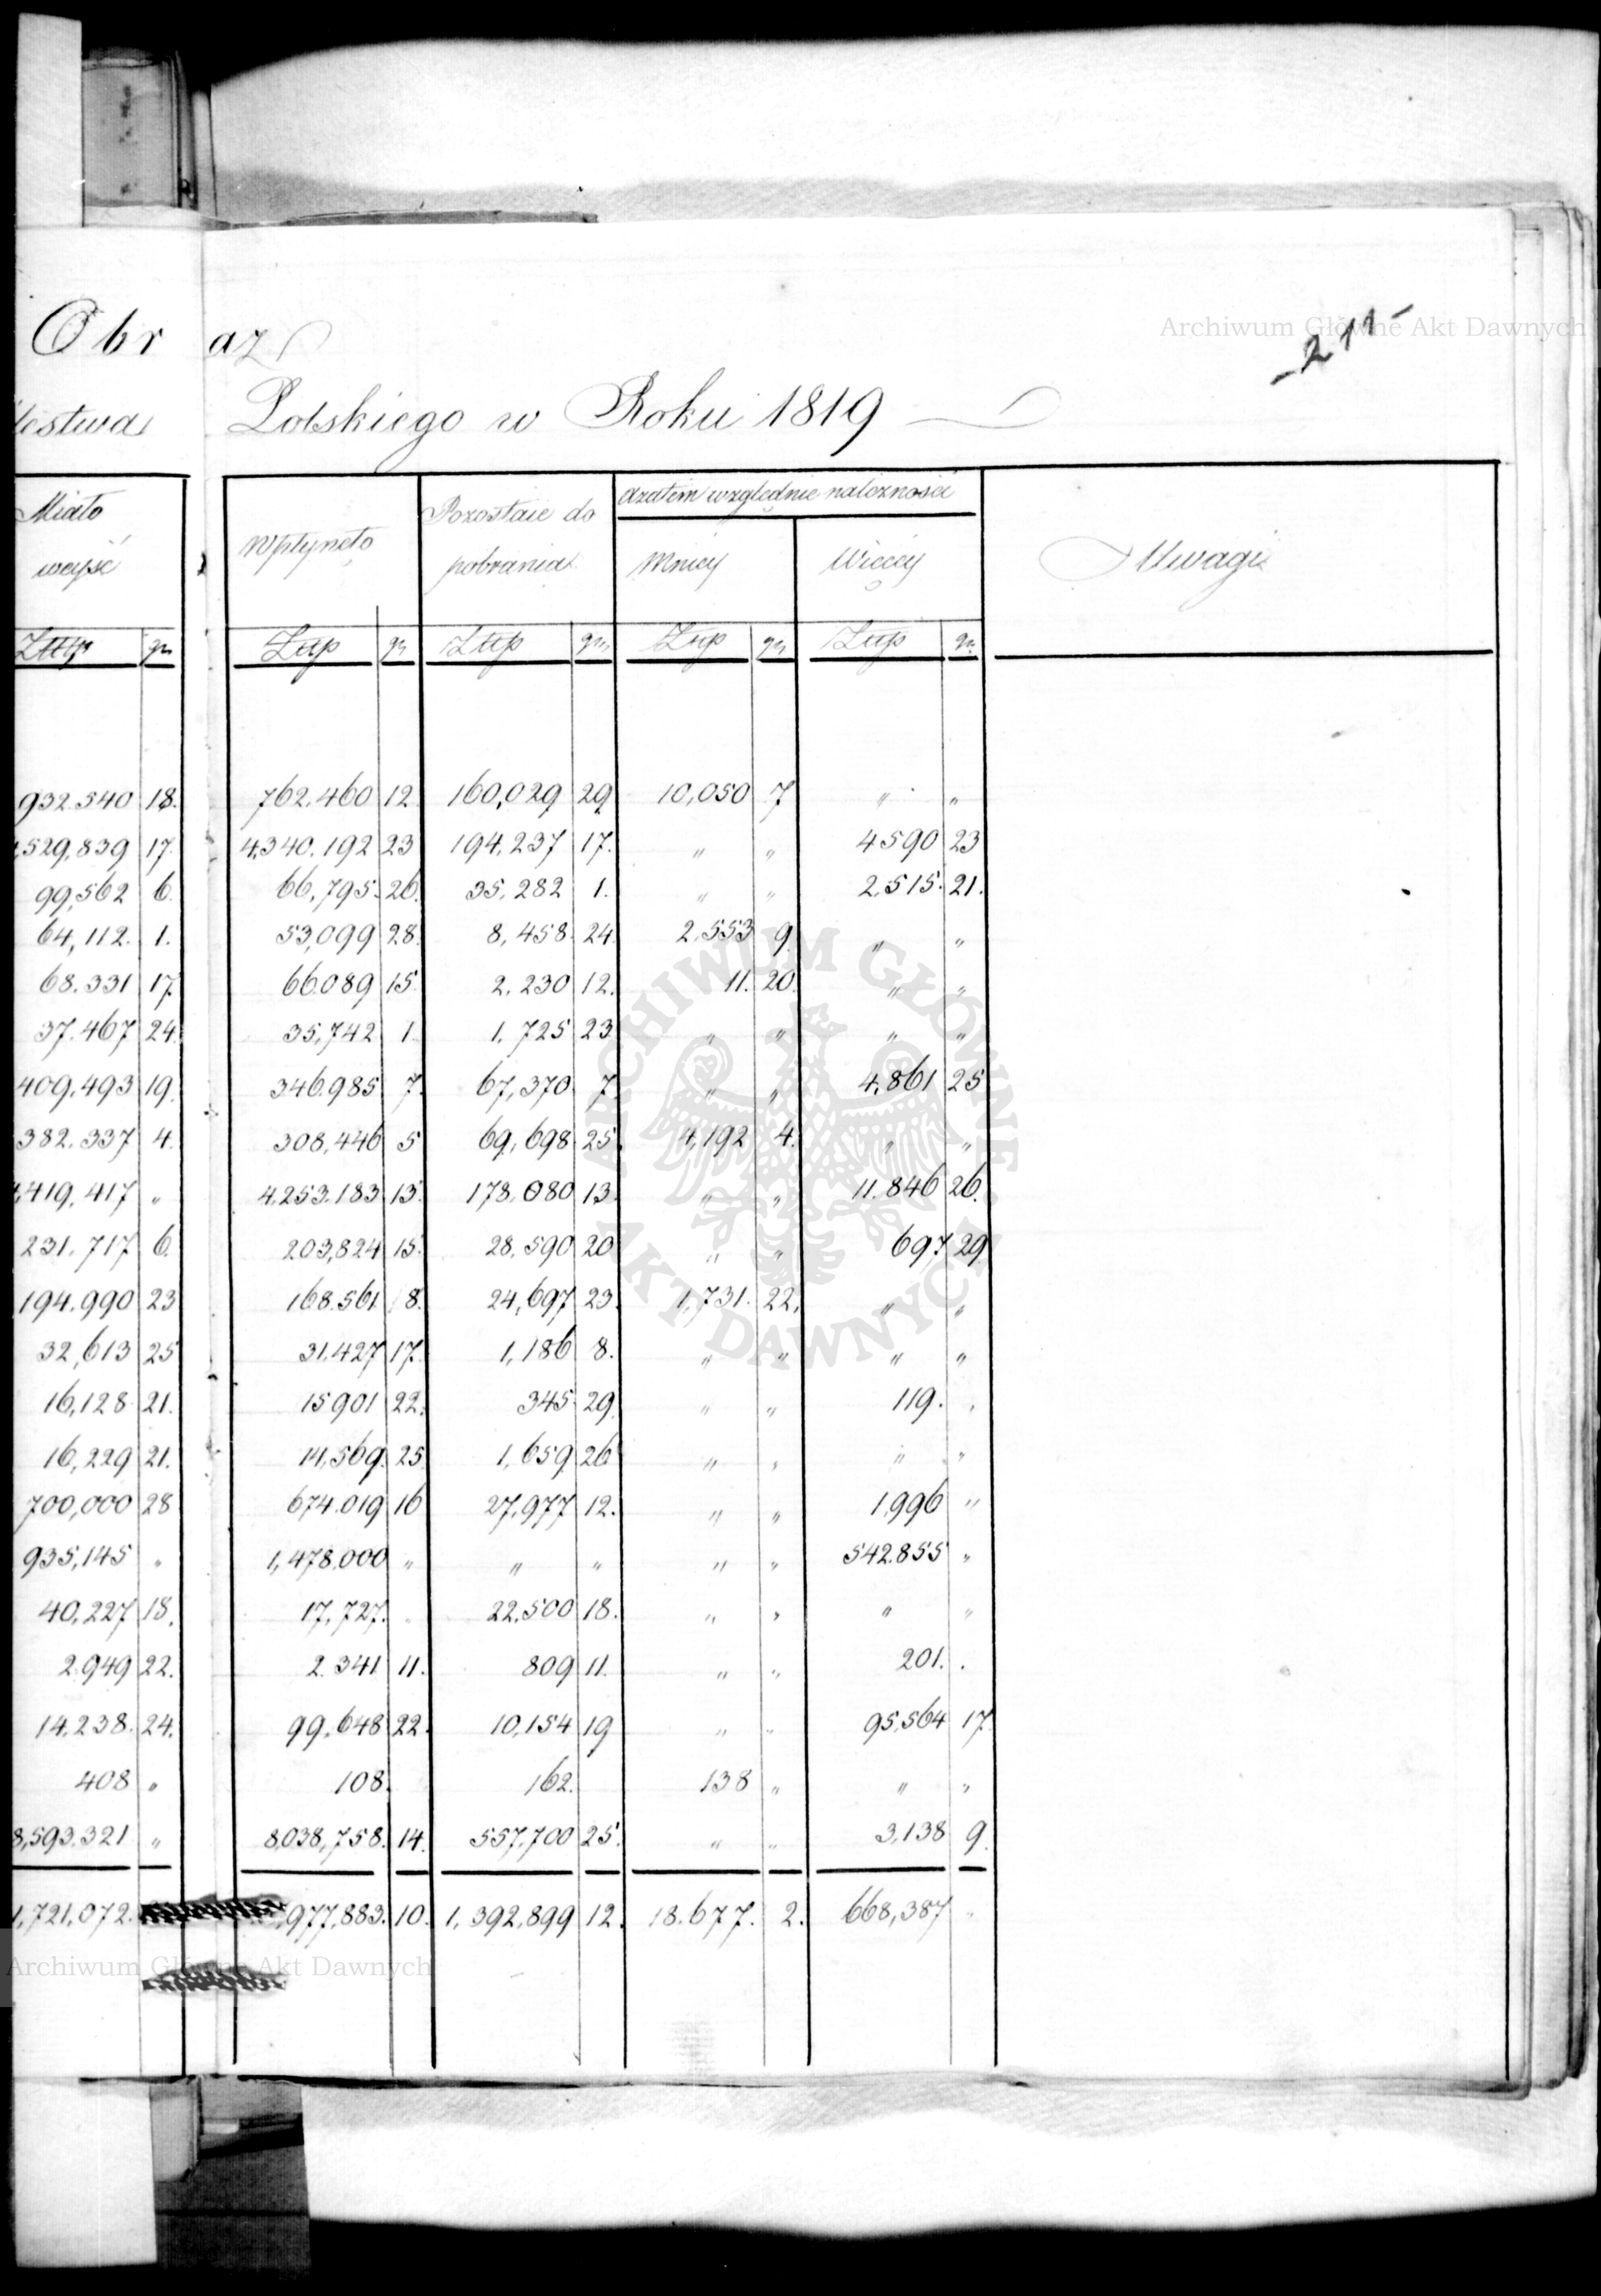 Archiwum Główne Akt Dawnych
- 211 -
Obraz
lestwa Polskiego w Roku 1819
Miało weyść | Wpłyneło | Pozostaie do pobrania | azatem względnie należności | Uwagi
Mniey | Więcey
Złtp | gr | Złtp | gr | Złtp | gr | Złtp | gr | Złtp | gr
932.540 | 18. | 762.460 | 12 | 160,029 | 29 | 10,050 | 7 | " | "
,529,839 | 17. | 4,340.192 | 23 | 194,237 | 17. | " | " | 4590 | 23
99,562 | 6. | 66,795. | 26. | 35,282 | 1. | " | " | 2.515. | 21.
64,112. | 1. | 53,099 | 28. | 8,458. | 24. | 2.553 | 9. | " | "
68.331 | 17. | 66089 | 15. | 2.230 | 12. | 11. | 20. | " | "
37.467 | 24. | 35,742 | 1. | 1,725 | 23 | " | " | " | "
409,493 | 19. | 346985 | 7. | 67,370 | 7. | " | " | 4,861 | 25
382.337 | 4. | 308,446 | 5 | 69,698 | 25. | 4,192 | 4. | " | "
,419,417 | " | 4.253.183 | 13. | 178.080 | 13. | " | " | 11.846 | 26.
231.717 | 6. | 203,824 | 15. | 28,590 | 20 | " | " | 697 | 29
194.990 | 23 | 168.561. | 8. | 24,697 | 23. | 1,731. | 22. | " | "
32,613 | 25 | 31.427 | 17. | 1,186 | 8. | " | " | " | "
16,128 | 21. | 15901 | 22. | 345 | 29. | " | " | 119. | "
16,229 | 21. | 14,569. | 25. | 1,659 | 26 | " | " | " | "
700,000 | 28 | 674.019 | 16 | 27,977 | 12. | " | " | 1,996 | "
935,145 | " | 1,478.000 | " | " | " | " | " | 542.855 | "
40,227 | 18. | 17,727. | | 22.500 | 18. | " | " | " | "
2.949 | 22. | 2.341 | 11. | 809 | 11. | " | " | 201. | .
14.238. | 24. | 99.648 | 22. | 10,154 | 19 | " | " | 95,564 | 17.
408 | " | 108. | | 162. | | 138 | " | " | "
8,593.321 | " | 8,038,758. | 14. | 557.700 | 25. | " | " | 3,138 | 9.
1,721,072. | | ,977,883. | 10. | 1,392,899 | 12. | 18.677. | 2. | 668,387 | "
Archiwum Główne Akt Dawnych
ARCHIWUM GŁÓWNE AKT DAWNYCH